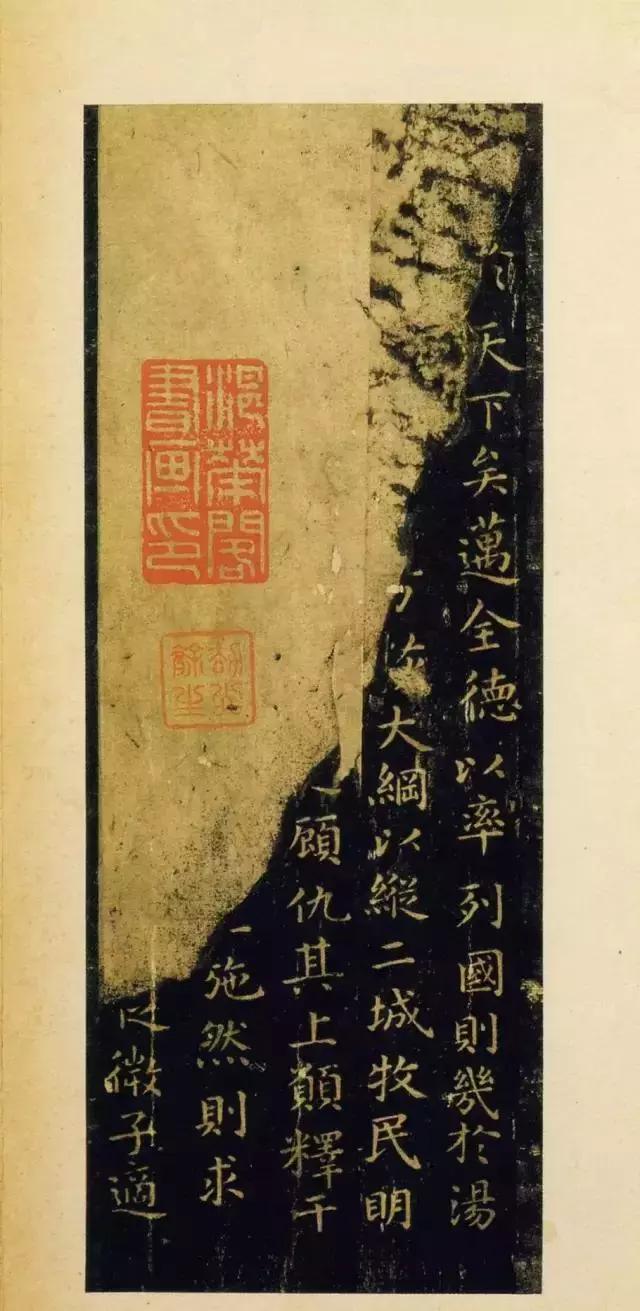 天下矣邁全德以率列國則幾於湯
大綱以縱二城牧民明
顧仇其上願釋干
施然則求
微子適
閣
書畫印